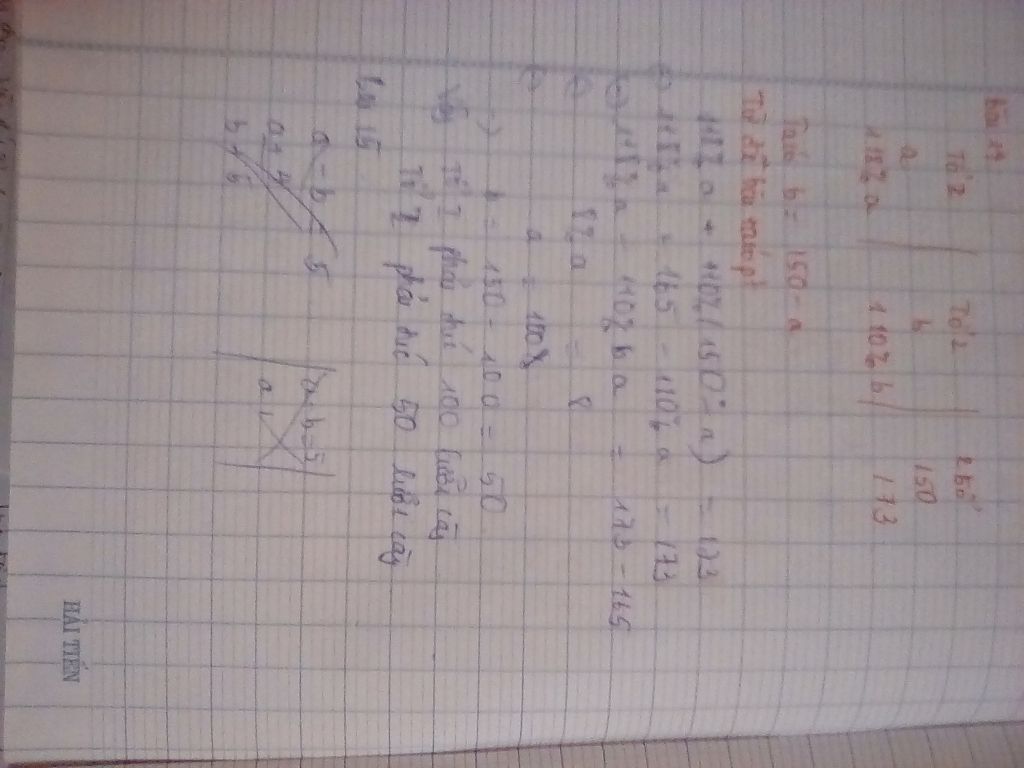 Bài 14
Tổ 1 Tổ 2 2 tổ
a b 150
118% a 110% b 173
Ta có b = 150 - a
Từ đề bài ta có pt
118% a + 110% (150 - a) = 173
118% a + 165 - 110% a = 173
118% a - 110% a = 173 - 165
8% a = 8
a = 100
b = 150 - 100 = 50
Vậy Tổ 1 phải đúc 100 lưỡi cày
Tổ 2 phải đúc 50 lưỡi cày
Bài 15
a - b 5 a - b = 5
a + 4 a
b + 5
HẢI TIẾN